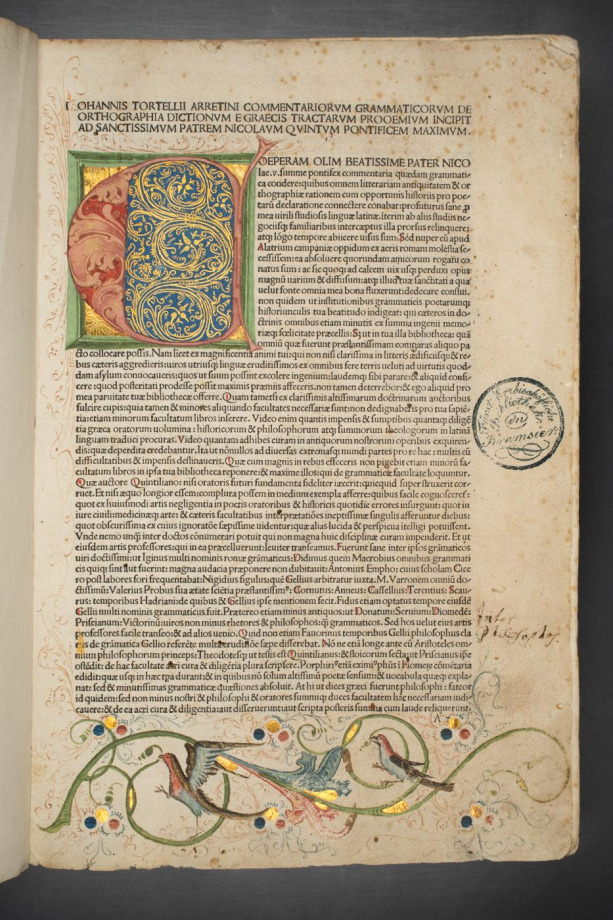 IOHANNIS TORTELLII ARRETINI COMMENTARIORVM GRAMMATICORVM DE
ORTHOGRAPHIA DICTIONVM E GRAECIS TRACTARVM PROOEMIVM INCIPIT
AD SANCTISSIMVM PATREM NICOLAVM QVINTVM PONTIFICEM MAXIMVM.
COEPERAM OLIM BEATISSIME PATER NICO
lae.v. summe pontifex commentaria quædam grammati⸗
ca condere: quibus omnem litterariam antiquitatem & or
thographiæ rationem cum opportunis historiis pro poe⸗
tarū declaratione connectere conabar: profuturus sane ꝓ
mea uirili studiosis linguæ latinæ. iterim ab aliis studiis ne⸗
gociisq; familiaribus interceptus illa prorsus relinquere:
atq; lōgo tempore abiicere uisus sum. Sed nuper cū apud
Alatrium campaniæ oppidum ex aeris romani molestia se⸗
cessissem: ea absoluere quorundam amicorum rogatu co
natus sum: ac sic quoq; ad calcem uix usq; perduxi opus
magnū uarium & diffusum: atq; illud tuæ sanctitati a qua
uelut fonte omnia mea bona fluxerunt: dedecare constui.
non quidem ut institutionibus grammaticis poetarumq;
historiunculis tua beatitudo indigeat: qui cæteros in do⸗
ctrinis omnibus etiam minutis ex summa ingenii memo⸗
riæq; fœlicitate præcellis: Sʒ ut in tua illa bibliotheca: quā
omniū quæ fuerunt præstantissimam comparas aliquo pa
cto collocare possis. Nam licet ex magnificentia animi tui: qui non nisi clarissima in litteris ædificiisq; & re⸗
bus cæteris aggredieris: uiros utriusq; linguæ eruditissimos ex omnibus fere terris ueluti ad uirtutis quod⸗
dam asylum conuocaueris: quos ut suum possint excolere ingenium: laudemq; sibi parare: & aliquid consi⸗
cere: quod posteritati prodesse possit maximis præmiis afficeres. non tamen deterrebor: & ego aliquid pro
mea paruitate tuæ bibliothecæ offerre. Quam tametsi ex clarissimis altissimarum doctrinarum auctoribus
fulcire cupis: quia tamen & minores aliquando facultates necessariæ sunt: non dedignaberis pro tua sapiē⸗
tia: etiam minorum facultatum libros inserere. Video enim quantis impensis & sumptibus quantaq; diligē
tia græca oratorum uolumina: historicorum & philosophorum atq; summorum iaceologorum in latinā
linguam traduci procuras. Video quantam adhibes curam in antiquorum nostrorum operibus exquiren⸗
dis: quæ deperdita credebantur. Ita ut nōnullos ad diuersas extremasq; mundi partes pro re hac: multis cū
difficultatibus & impensis destinaueris. Quæ cum magnis in rebus effeceris non pigebit etiam minorū fa⸗
cultatum libros in ipsa tua bibliotheca reponere: & maxime illosqui de grammaticæ facultate loquuntur.
Quæ auctore Quintiliano: nisi oratoris futuri fundamenta fideliter iæcerit: quicquid super struxerit cor⸗
ruet. Et nisi æquo longior essem: complura possem in medium exempla afferre: quibus facile cognosceret:
quot ex huiusmodi artis negligentia in poetis oratoribus & historicis quotidie errores insurgunt: quot in
iure ciuili: medicinæq; arte: & cæteris facultatibus interp̄tatiōes ineptissimæ singulis afferuntur diebus:
quot obscurissima ex eiusignoratōe sæpissime uidentur: quæ alias lucida & perspicua itelligi potuissent.
Vnde nemo unq̄ inter doctos cōnumerari potuit qui non magna huic disciplinæ curam impenderit. Et ut
eiusdem artis professores: qui in ea præcelluerunt: leuiter transeamus. Fuerunt sane inter ipsos grāmaticos
uiri doctissimi: ut Iginus multi nominis romæ grāmaticus: Didimus quem Macrobius omnibus grammati
cis quiq; sint aut fuerint: magna audacia præponere non dubitauit: Antonius Empho: cuius scholam Cice
ro post labores fori frequentabat: Nigidius figulus: quē Gellius arbitratur iuxta. M. Varronem omniū do⸗
ctissimū: Valerius Probus sua ætate sciētia præstantissimꝰ: Cornutus: Anneus: Cæsellius: Terentius: Scau⸗
rus: temporibus Hadriani: de quibus & Gellius ipse mentionem fecit. Fidus etiam optatus tempore eiusdē
Gelli multi nominis grammaticus fuit. Prætereo etiam minus antiquos: ut Donatum: Seruium: Diomedē:
Priscianum: Victorinū: uiros non minus rhetores & philosophos: q̄ grammaticos. Sed hos uelut eius artis
professores facile transeo: & ad alios uenio. Quid non etiam Fauorinus temporibus Gellii philosophus cla
rus de grāmatica Gellio referēte multa erudiōe sæpe differebat. Nō ne etiā longe ante eū Aristoteles om⸗
nium philosophorum princeps: Theodotesq; ut testis est Quintilianus: & stoicorum secta: ut Priscianus ip̄e
ostēdit: de hac facultate acri cura & diligētia plura scripsere. Porphiriꝰ etiā eximiꝰ phūs: Homero cōmētaria
edidit: quæ usq; in hæc tp̄a durant: & in quibus nō solum altissimū poetæ sensum: & uocabula quæq; expla⸗
nat: sed & minutissimas grammaticæ quæstiones absoluit. At hi ut dices græci fuerunt philosophi: fateor
id quidem: sed non minus nostri & philosophi & oratores summiq; duces facultatem hāc necessariam iudi⸗
cauere: & de ea acri cura & diligentia: aut disseruerunt: aut scripta posteris summa cum laude reliquerunt.
inter
philosophos